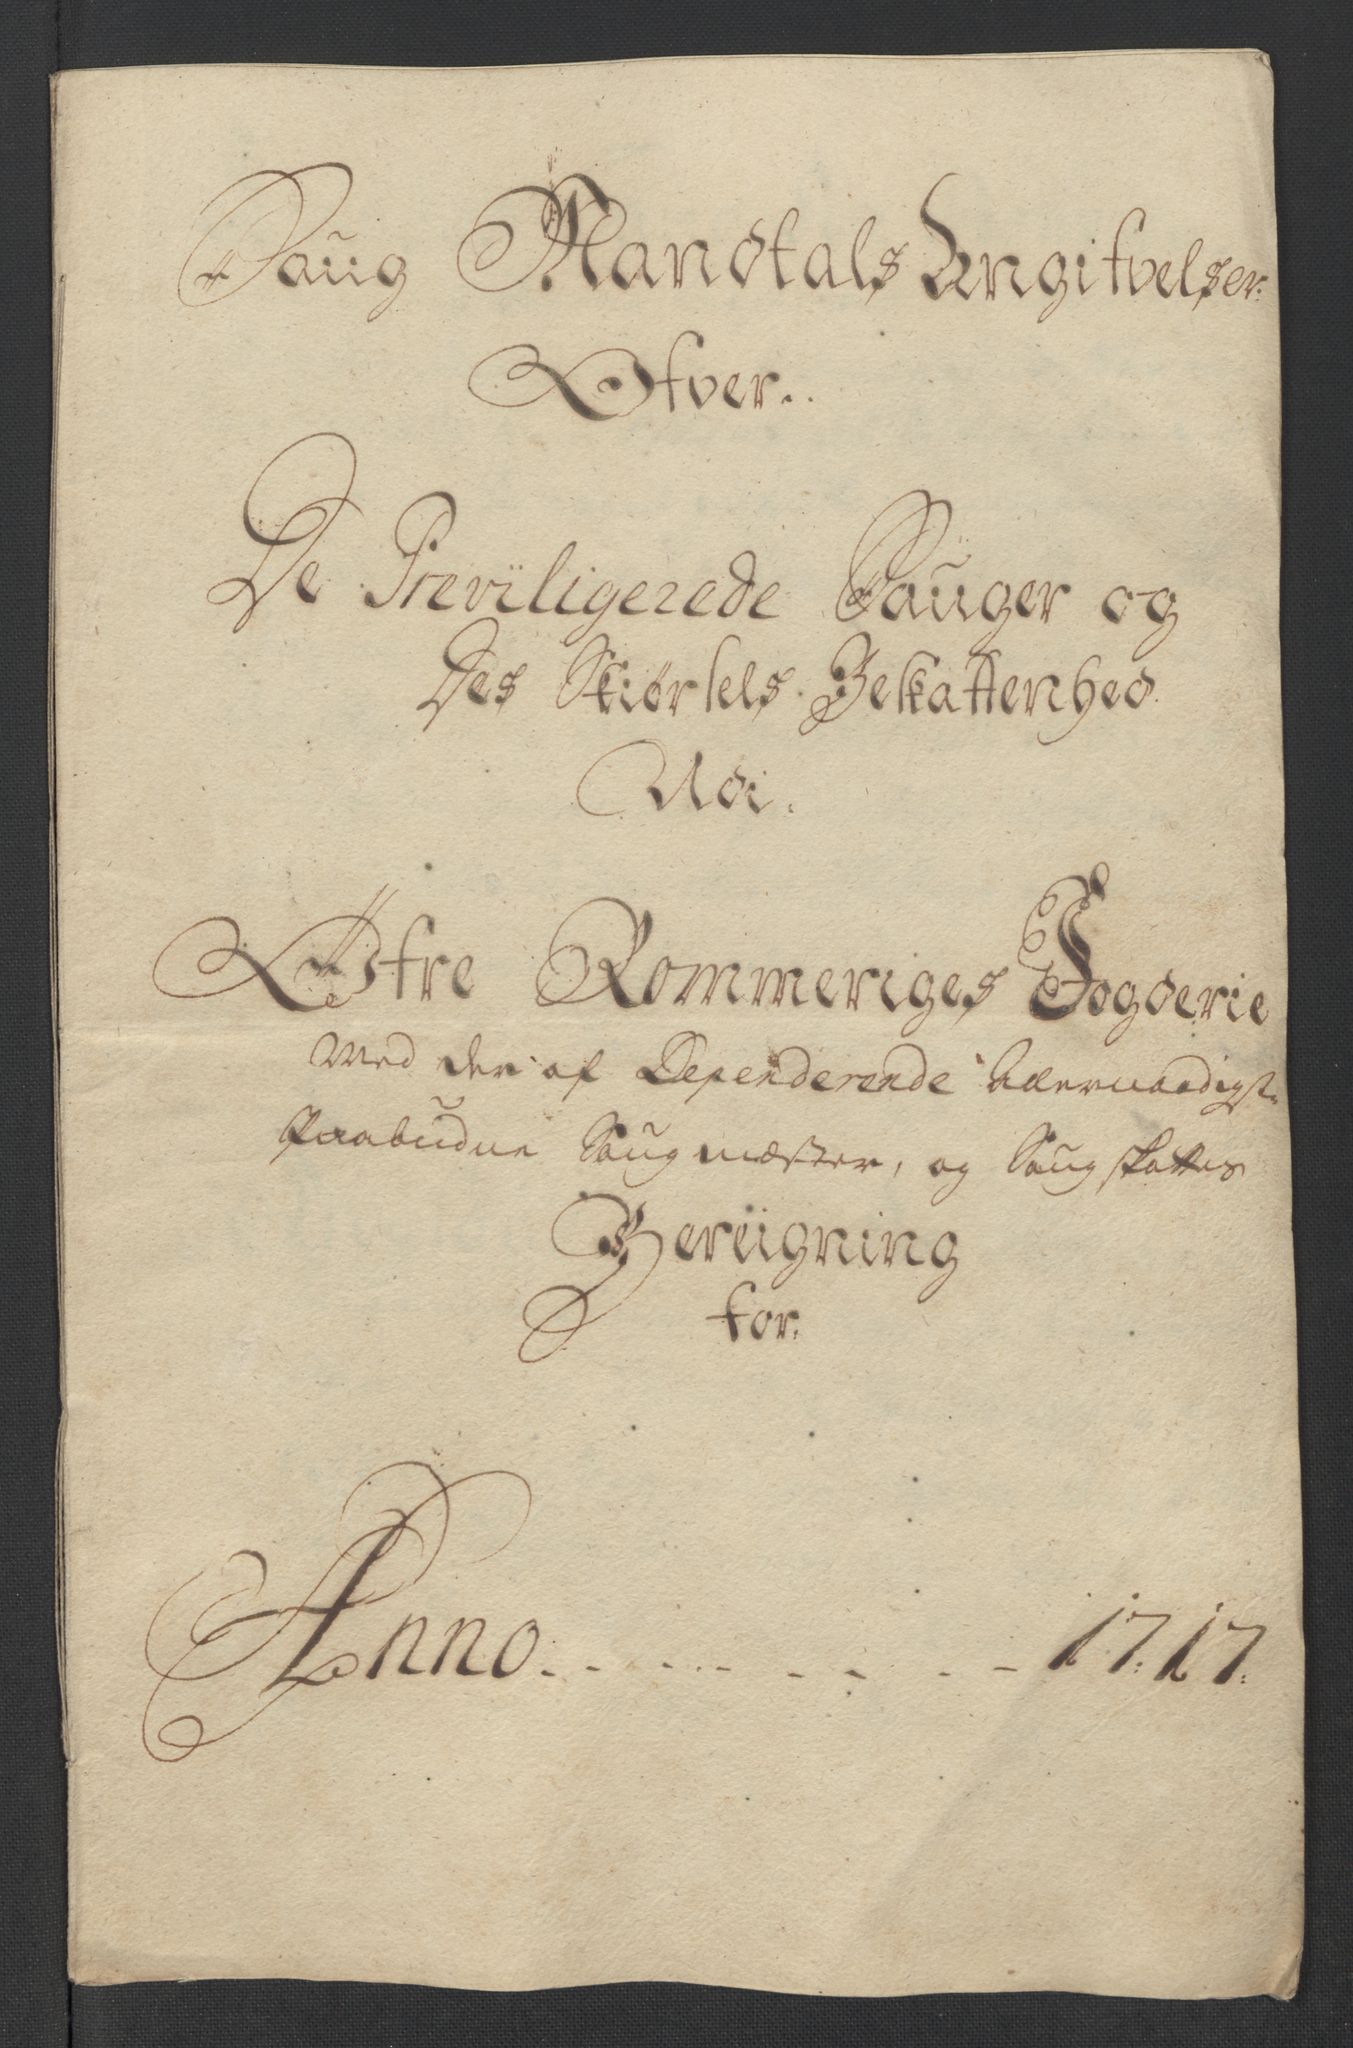 Saug Mandtals Angifvelser
Ofver.
De Previligerede Sauger og
Des Skiørsels Beskattenhed
Udi.
Øfre Rommeriges Fogderie
Med der af Dependerende
Paabudne Saugmæster, og Saugskattes
Berügning
for.
Anno 1717.